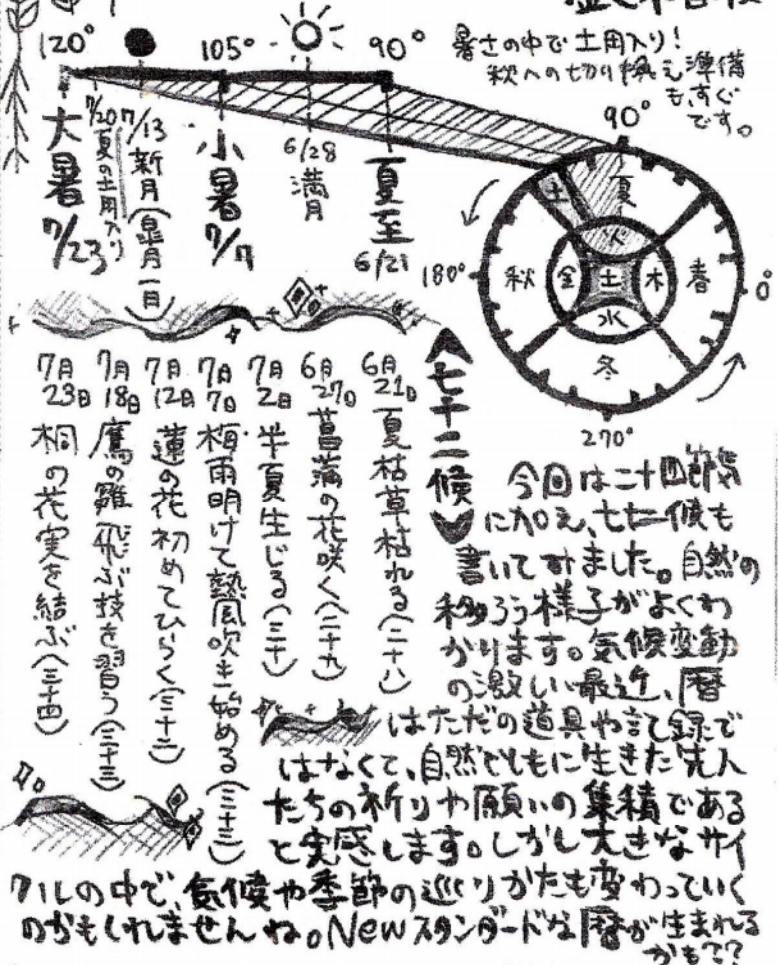 暑さの中で土用入り!
秋への切り換え準備
も、すぐ
です。
120°
105°
90°
大暑
7/23
7/20 夏の土用入り
7/13 新月(皐月一日)
小暑
7/7
6/28
満月
夏至
6/21
90°
180°
0°
270°
夏
土
火
秋
金
土
木
春
水
冬
七十二候
6月21日 夏枯草枯れる(二十八)
6月27日 菖蒲の花咲く(二十九)
7月2日 半夏生じる(三十)
7月7日 梅雨明けて熱風吹き始める(三十三)
7月12日 蓮の花初めてひらく(三十二)
7月18日 鷹の雛飛ぶ技を習う(三十三)
7月23日 桐の花実を結ぶ(三十四)
今回は二十四節気
に加え、七十二候も
書いてみました。自然の
移ろう様子がよくわ
かります。気候変動
の激しい最近、暦
はただの道具や記録で
はなくて、自然とともに生きた先人
たちの祈りや願いの集積である
と実感します。しかし大きなサイ
クルの中で、気候や季節の巡りかたも変わっていく
のかもしれませんね。Newスタンダードな暦が生まれる
かも??